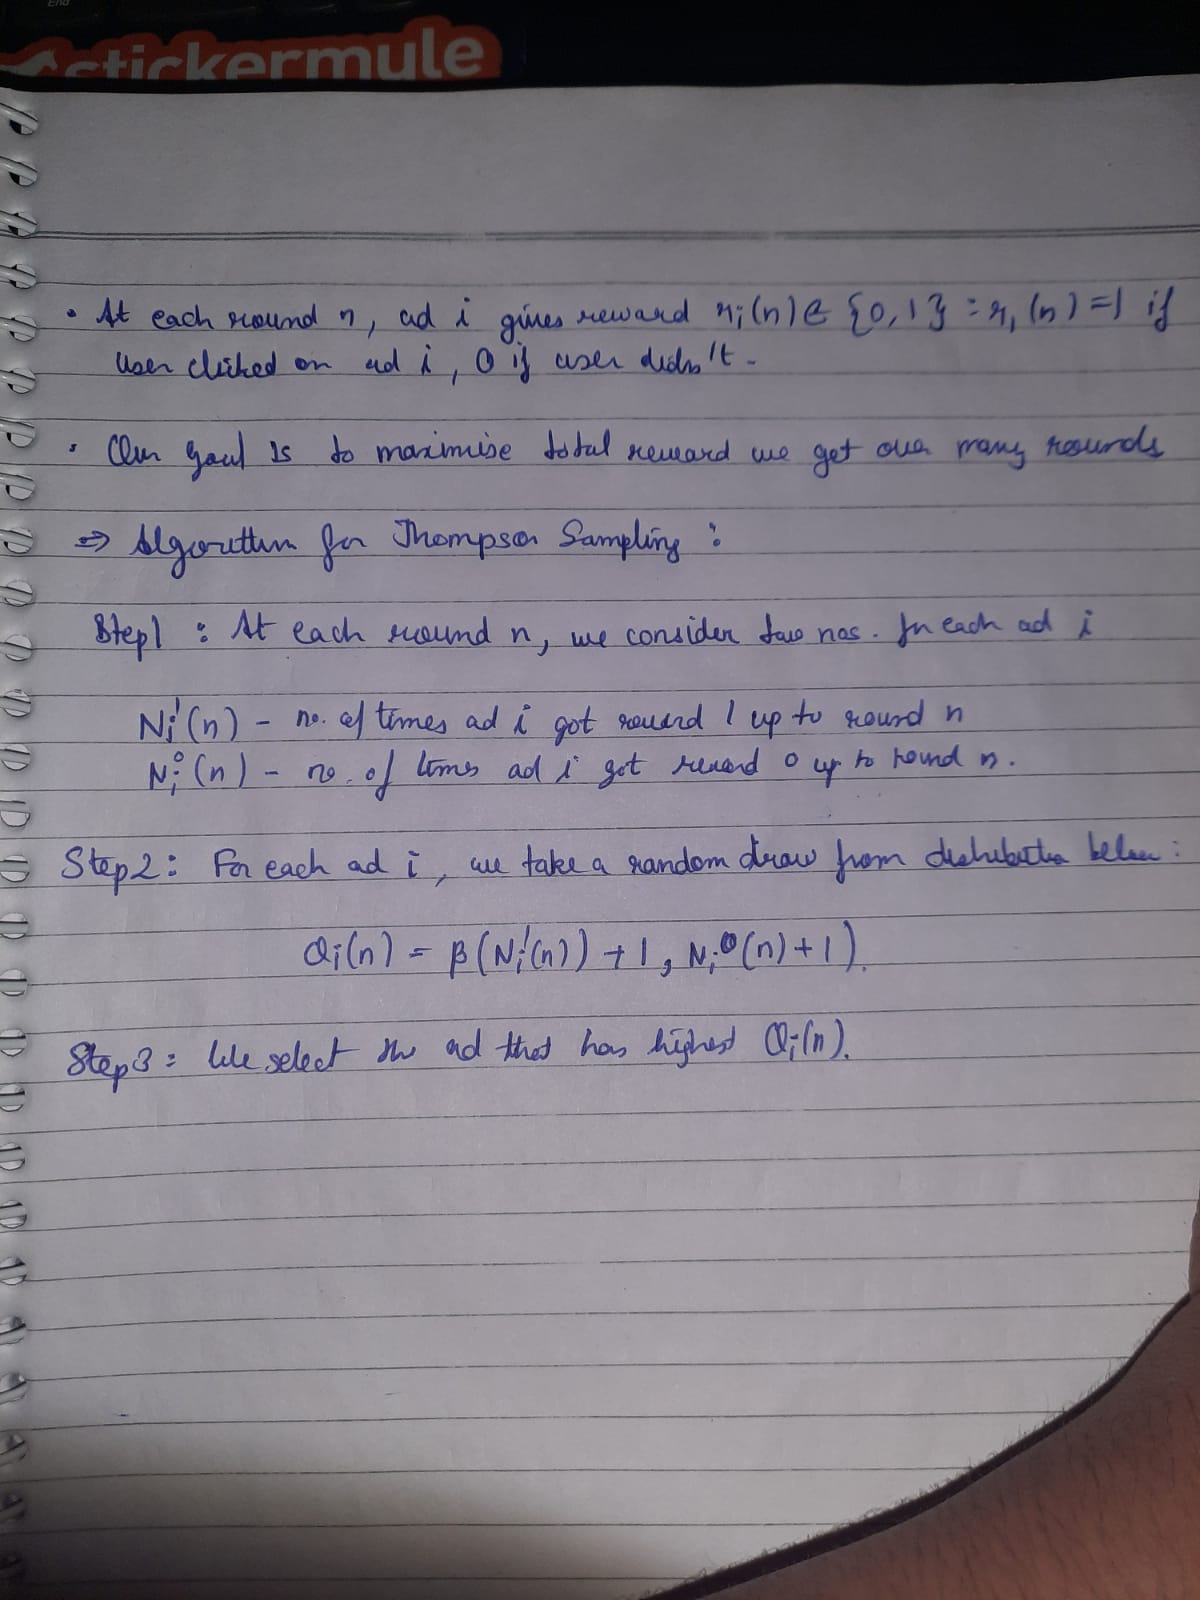 End
stickermule
• At each round n, ad i gives reward ri(n) ∈ {0, 1} : r, (n) = 1 if
User clicked on ad i, 0 if user didn't -
• Our goal is to maximise total reward we get over many rounds
⇒ Algorithm for Thompson Sampling :
Step1 : At each round n, we consider two nos. for each ad i
Nᵢ¹(n) - no. of times ad i got reward 1 up to round n
Nᵢ⁰(n) - no. of times ad i got reward 0 up to round n.
Step2: For each ad i, we take a random draw from distribution below :
Qᵢ(n) = β(Nᵢ¹(n)) + 1, Nᵢ⁰(n) + 1).
Step3 : We select the ad that has highest Qᵢ(n).